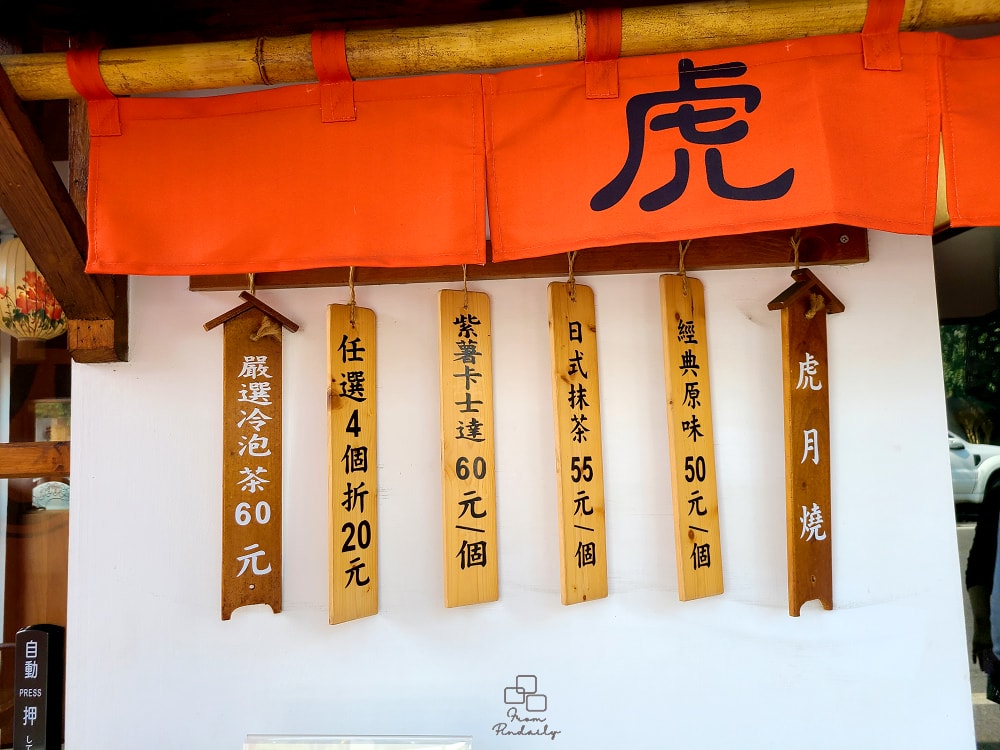 虎
虎月燒
經典原味50元/個
日式抹茶55元/個
紫薯卡士達60元/個
任選4個折20元
嚴選冷泡茶60元
自動
PRESS
押し
From
Pindaily